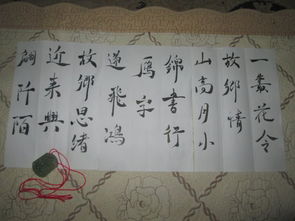 一叢花令
故鄉情
山高月小
錦書行
雁字
遞飛鴻
故鄉思緒
近来興
阡陌